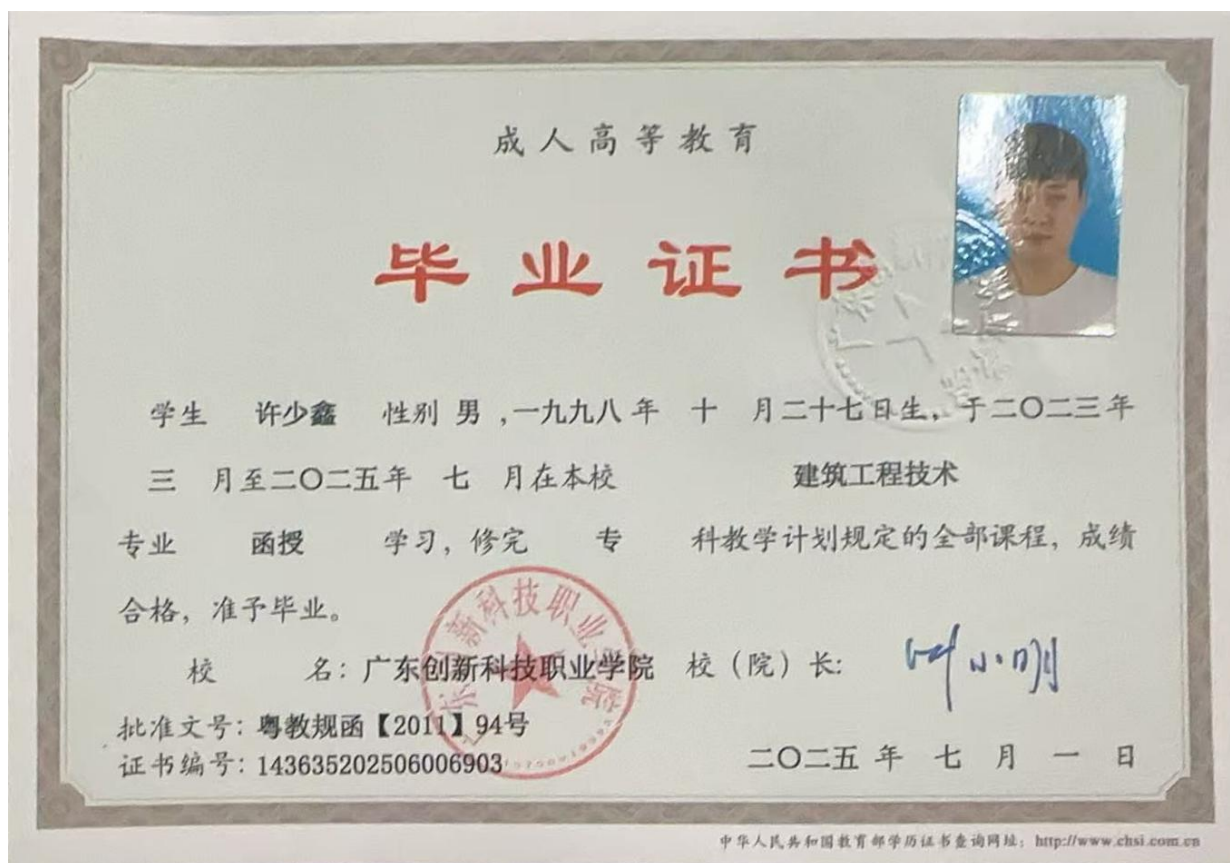 成人高等教育
毕业证书
学生 许少鑫 性别 男 ,一九九八年 十 月二十七日生, 于二〇二三年
三 月至二〇二五年 七 月在本校 建筑工程技术
专业 函授 学习, 修完 专 科教学计划规定的全部课程, 成绩
合格, 准予毕业。
校 名: 广东创新科技职业学院 校(院)长:
批准文号: 粤教规函【2011】94号
证书编号: 143635202506006903
二〇二五 年 七 月 一 日
广东创新科技职业学院
中华人民共和国教育部学历证书查询网址: http://www.chsi.com.cn